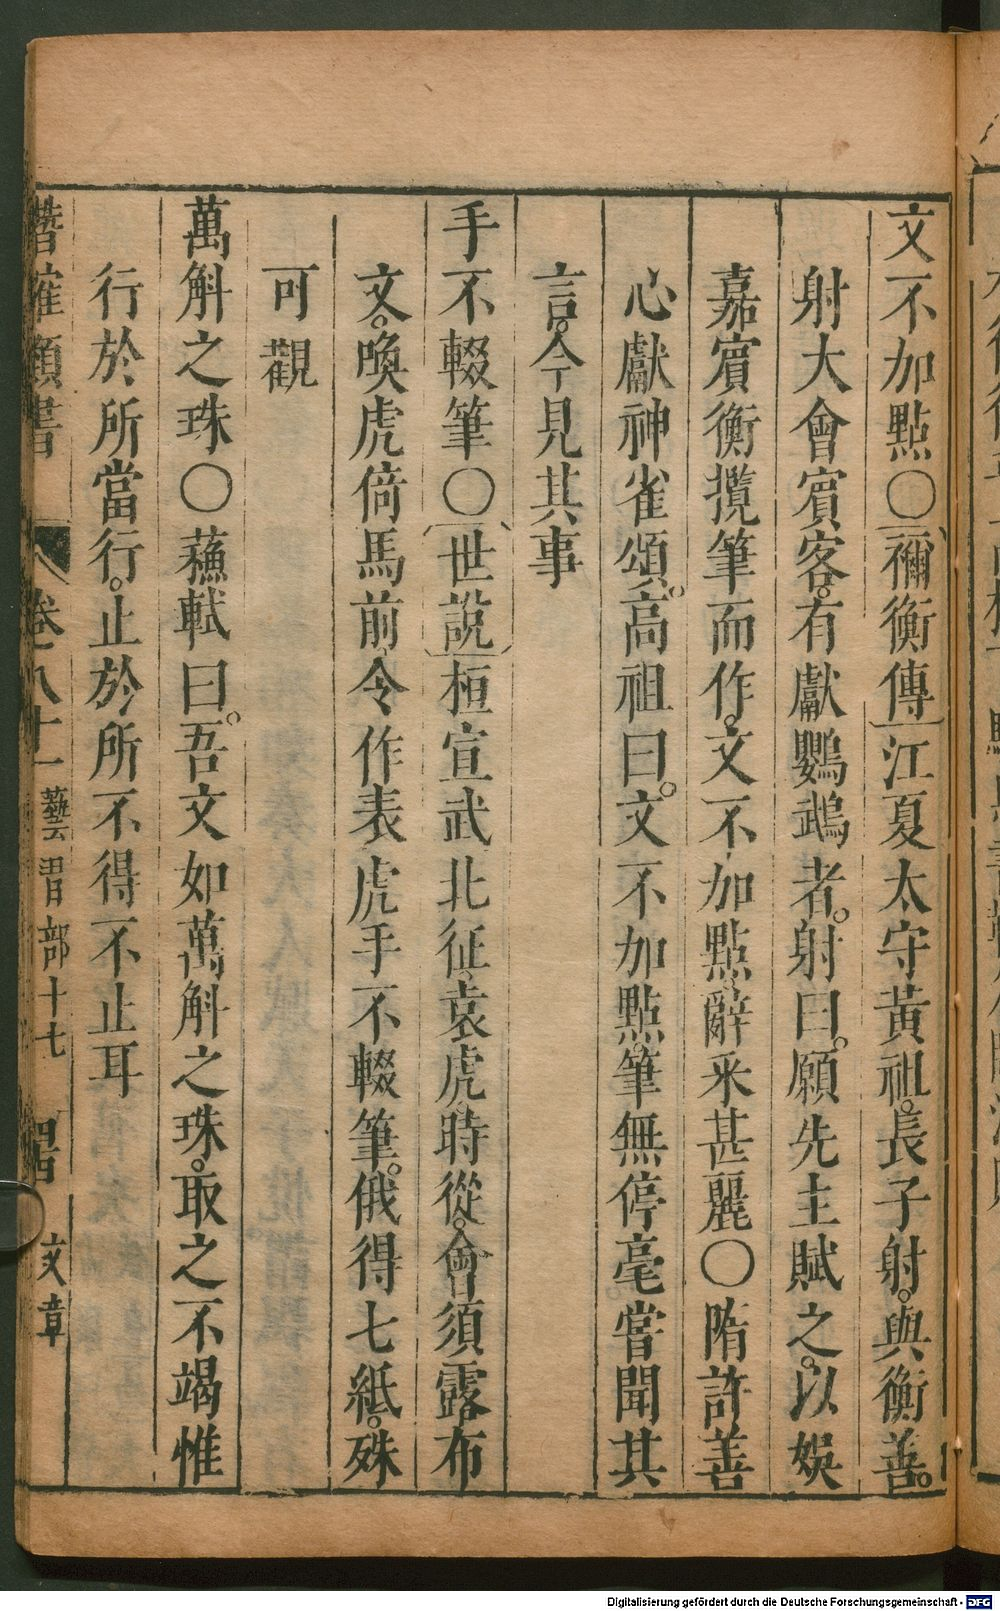 文不加點○禰衡傳江夏太守黃祖。長子射。與衡善。
射大會賓客。有獻鸚鵡者。射曰。願先主賦之。以娛
嘉賓衡攬筆而作。文不加點。辭采甚麗○隋許善
心獻神雀頌。高祖曰。文不加點。筆無停毫嘗聞其
言。今見其事
手不輟筆○世說桓宣武北征。袁虎時從。會須露布
文。喚虎倚馬前令作表虎手不輟筆。俄得七紙。殊
可觀
萬斛之珠○蘇軾曰。吾文如萬斛之珠。取之不竭惟
行於所當行。止於所不得不止耳
潛確類書 卷八十一 藝習部十七 四 文章
Digitalisierung gefördert durch die Deutsche Forschungsgemeinschaft - DFG